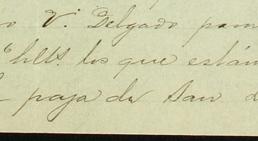 o V. Delgado para
los que están
paja de San